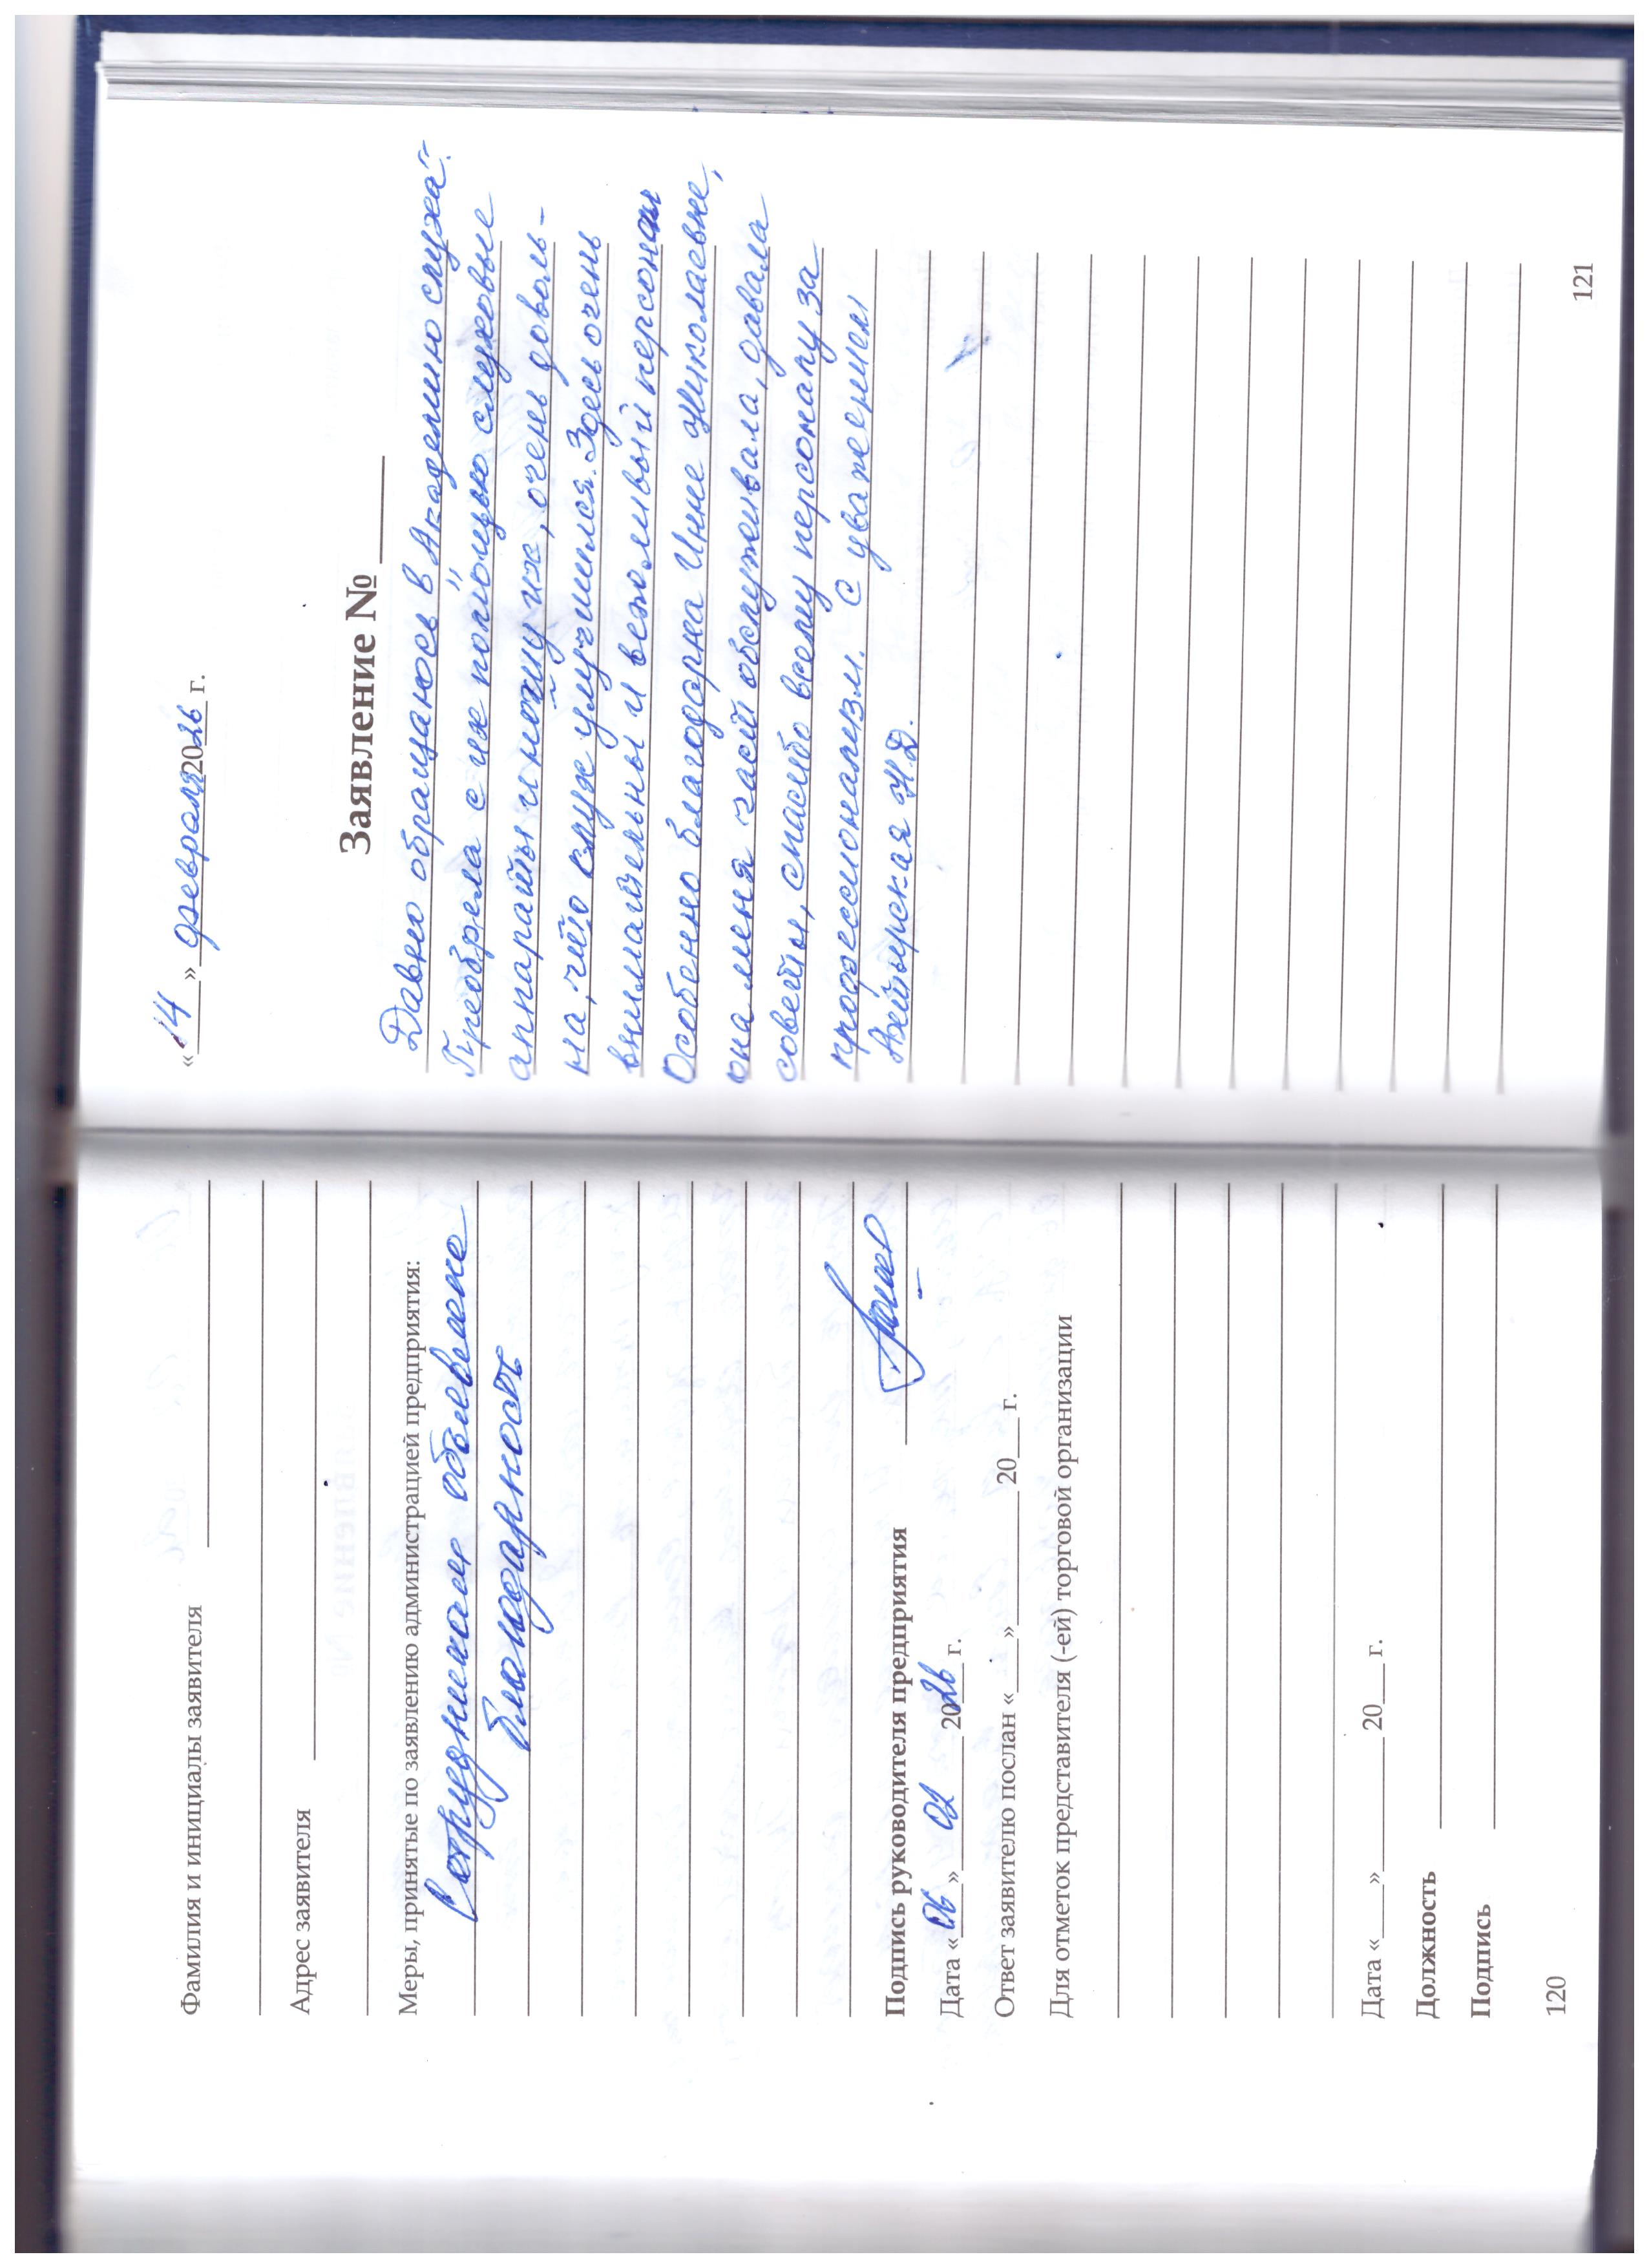 Фамилия и инициалы заявителя
Адрес заявителя
Меры, принятые по заявлению администрацией предприятия:
Сотрудникам объявлена
благодарность
Подпись руководителя предприятия
Дата «06» 02 2026 г.
Ответ заявителю послан «___» ________ 20___ г.
Для отметок представителя (-ей) торговой организации
Дата «___» ________ 20___ г.
Должность
Подпись
120
«14» февраля 2026 г.
Заявление № ____
Давно обращаюсь в "Академию слуха".
Преобрела с их помощью слуховые
аппараты и ношу их, очень доволь-
на, что слух улучшился. Здесь очень
внимательны и вежливый персонал
Особенно благодарна Инне Николаевне,
она меня часто обслуживала, давала
советы, спасибо всему персоналу за
профессионализм. С уважением
Н.Д.
121